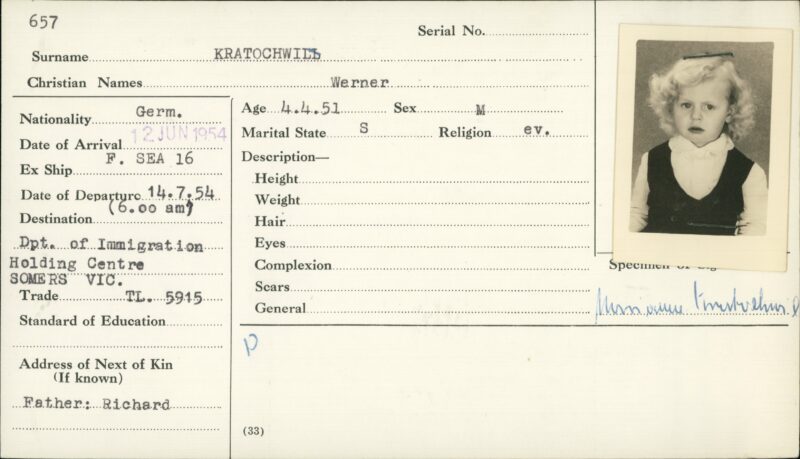 657
Serial No.
Surname KRATOCHWILL
Christian Names Werner
Nationality Germ.
Date of Arrival 12 JUN 1954
Ex Ship F. SEA 16
Date of Departure 14.7.54
(6.oo am)
Destination
Dpt. of Immigration
Holding Centre
SOMERS VIC.
Trade TL. 5915
Standard of Education
Address of Next of Kin
(If known)
Father: Richard
Age 4.4.51 Sex M
Marital State S Religion ev.
Description—
Height
Weight
Hair
Eyes
Complexion
Scars
General
Specimen of
p
(33)